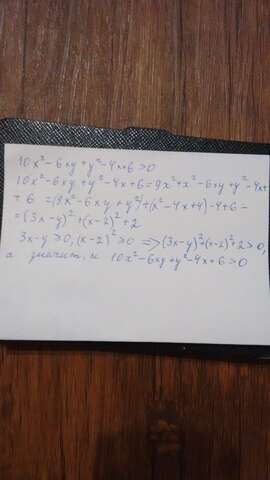 10x²-6xy+y²-4x+6>0
10x²-6xy+y²-4x+6=9x²+x²-6xy+y²-4x+
+6=(9x²-6xy+y²)+(x²-4x+4)-4+6=
=(3x-y)²+(x-2)²+2
3x-y≥0,(x-2)²≥0=>(3x-y)²+(x-2)²+2>0,
а значит, и 10x²-6xy+y²-4x+6>0